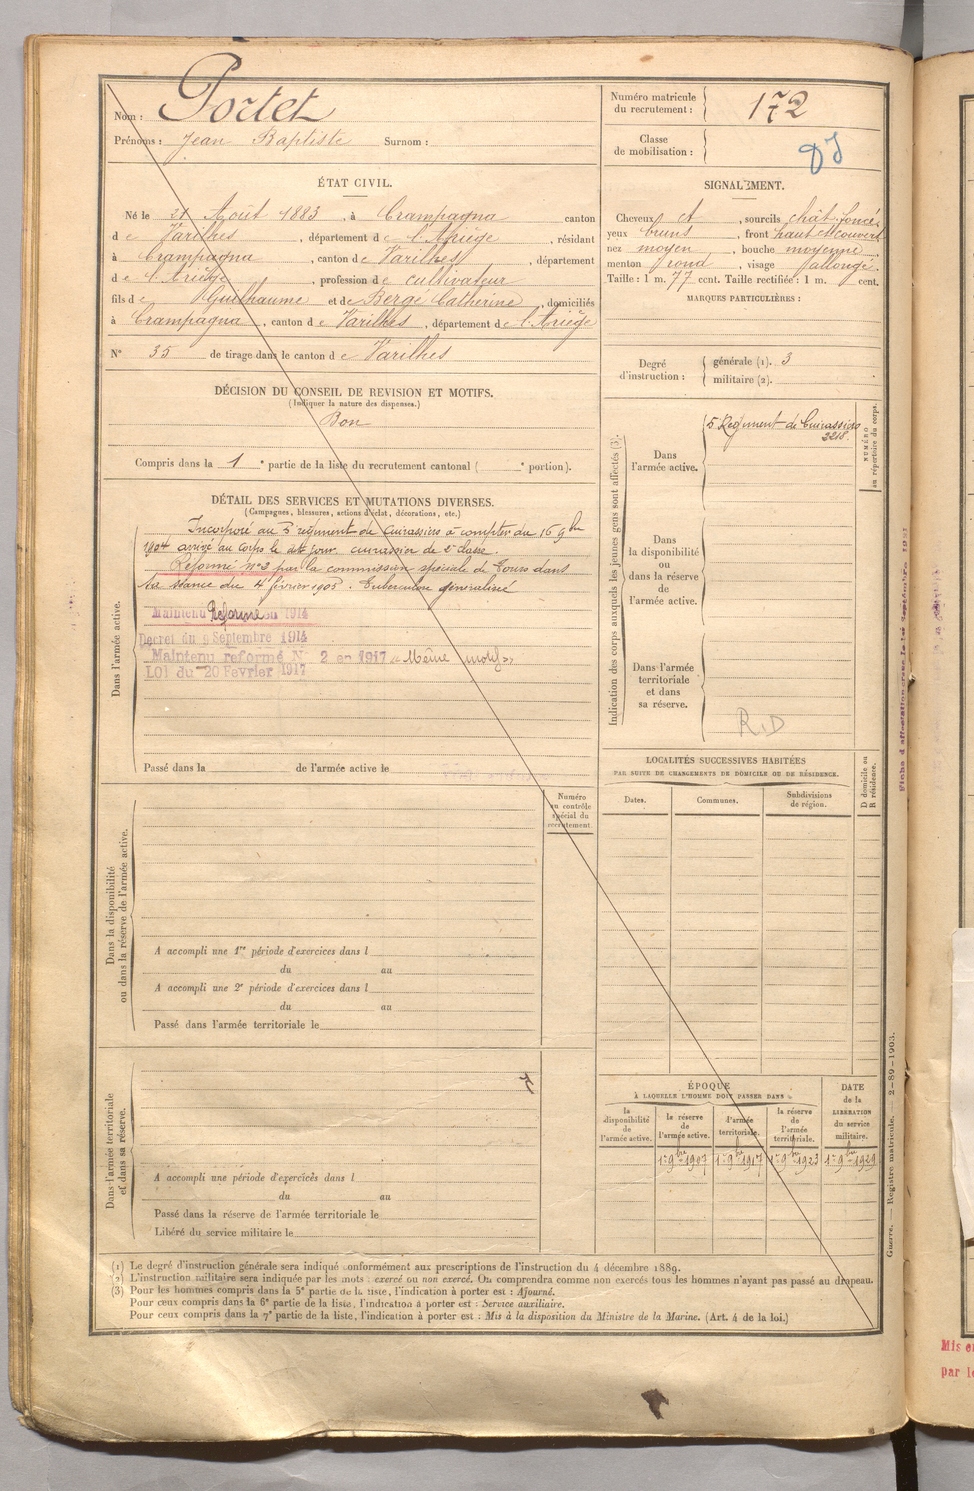 Nom : Portet
Prénoms : Jean Baptiste Surnom :
ÉTAT CIVIL.
Né le 21 Août 1883, à Crampagna canton
de Varilhes, département de l'Ariège, résidant
à Crampagna, canton de Varilhes, département
de l'Ariège, profession de cultivateur
fils de Guilhaume et de Berge Catherine, domiciliés
à Crampagna, canton de Varilhes, département de l'Ariège
N° 35 de tirage dans le canton de Varilhes
DÉCISION DU CONSEIL DE REVISION ET MOTIFS.
(Indiquer la nature des dispenses.)
Bon
Compris dans la 1e partie de la liste du recrutement cantonal ( e portion).
DÉTAIL DES SERVICES ET MUTATIONS DIVERSES.
(Campagnes, blessures, actions d'éclat, décorations, etc.)
Incorporé au 5 régiment de Cuirassiers à compter du 16 9bre
1904 arrivé au corps le dit jour. cuirassier de 2e classe.
Réformé n°2 par la commission spéciale de Tours dans
sa séance du 4 février 1905. Tuberculose généralisée
Dans l'armée active.
Maintenu Réformé en 1914
Décret du 9 Septembre 1914
Maintenu reformé N° 2 en 1917 « Même motif »
LOI du 20 Fevrier 1917
Passé dans la de l'armée active le
Dans la disponibilité
ou dans la réserve de l'armée active.
Numéro
au contrôle
spécial du
recrutement.
A accompli une 1re période d'exercices dans l
du au
A accompli une 2e période d'exercices dans l
du au
Passé dans l'armée territoriale le
Dans l'armée territoriale
et dans sa réserve.
A accompli une période d'exercices dans l
du au
Passé dans la réserve de l'armée territoriale le
Libéré du service militaire le
Numéro matricule
du recrutement : 172
Classe
de mobilisation :
SIGNALEMENT.
Cheveux ct, sourcils chât. foncé,
yeux bruns, front haut et couvert
nez moyen, bouche moyenne
menton rond, visage allongé.
Taille : 1 m. 77 cent. Taille rectifiée : 1 m. cent.
MARQUES PARTICULIÈRES :
Degré
d'instruction :
générale (1). 3
militaire (2).
Indication des corps auxquels les jeunes gens sont affectés (3).
NUMÉRO
au répertoire du corps.
Dans
l'armée active.
5 Régiment de Cuirassiers
3218.
Dans
la disponibilité
ou
dans la réserve
de
l'armée active.
Dans l'armée
territoriale
et dans
sa réserve.
R.D
LOCALITÉS SUCCESSIVES HABITÉES
PAR SUITE DE CHANGEMENTS DE DOMICILE OU DE RÉSIDENCE.
D domicile ou
R résidence.
Dates. Communes. Subdivisions
de région.
ÉPOQUE
À LAQUELLE L'HOMME DOIT PASSER DANS
la
disponibilité
de
l'armée active.
la réserve
de
l'armée active.
l'armée
territoriale.
la réserve
de
l'armée
territoriale.
DATE
de la
LIBÉRATION
du service
militaire.
1er 9bre 1907 1er 9bre 1917 1er 9bre 1923 1er 9bre 1929
Guerre. — Registre matricule. — 2-89-1903.
(1) Le degré d'instruction générale sera indiqué conformément aux prescriptions de l'instruction du 4 décembre 1889.
(2) L'instruction militaire sera indiquée par les mots : exercé ou non exercé. On comprendra comme non exercés tous les hommes n'ayant pas passé au drapeau.
(3) Pour les hommes compris dans la 5e partie de la liste, l'indication à porter est : Ajourné.
Pour ceux compris dans la 6e partie de la liste, l'indication à porter est : Service auxiliaire.
Pour ceux compris dans la 7e partie de la liste, l'indication à porter est : Mis à la disposition du Ministre de la Marine. (Art. 4 de la loi.)
Mis e
par le